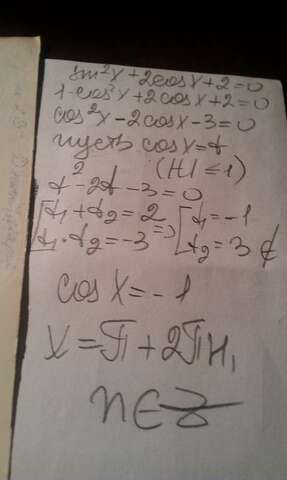 sin²x+2cosx+2=0
1-cos²x+2cosx+2=0
cos²x-2cosx-3=0
пусть cosx=t
(|t|≤1)
t²-2t-3=0
[t₁+t₂=2 => [t₁=-1
[t₁·t₂=-3 [t₂=3 ∉
cosx=-1
x=П+2Пn,
n∈Z